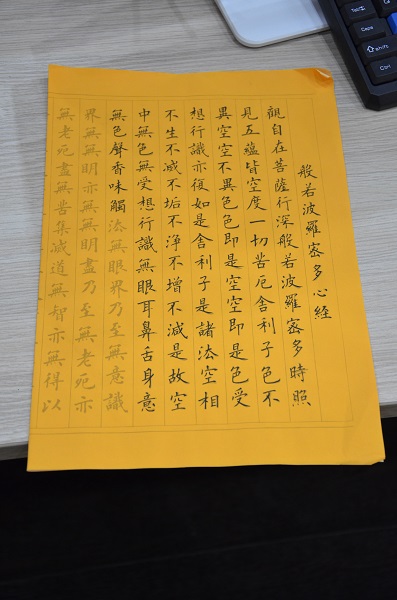 般若波羅蜜多心経
觀自在菩薩行深般若波羅蜜多時照
見五蘊皆空度一切苦厄舍利子色不
異空空不異色色即是空空即是色受
想行識亦復如是舍利子是諸法空相
不生不滅不垢不淨不增不減是故空
中無色無受想行識無眼耳鼻舌身意
無色聲香味觸法無眼界乃至無意識
界無無明亦無無明盡乃至無老死亦
無老死盡無苦集滅道無智亦無得以
Tab
Caps
shift
Ctrl